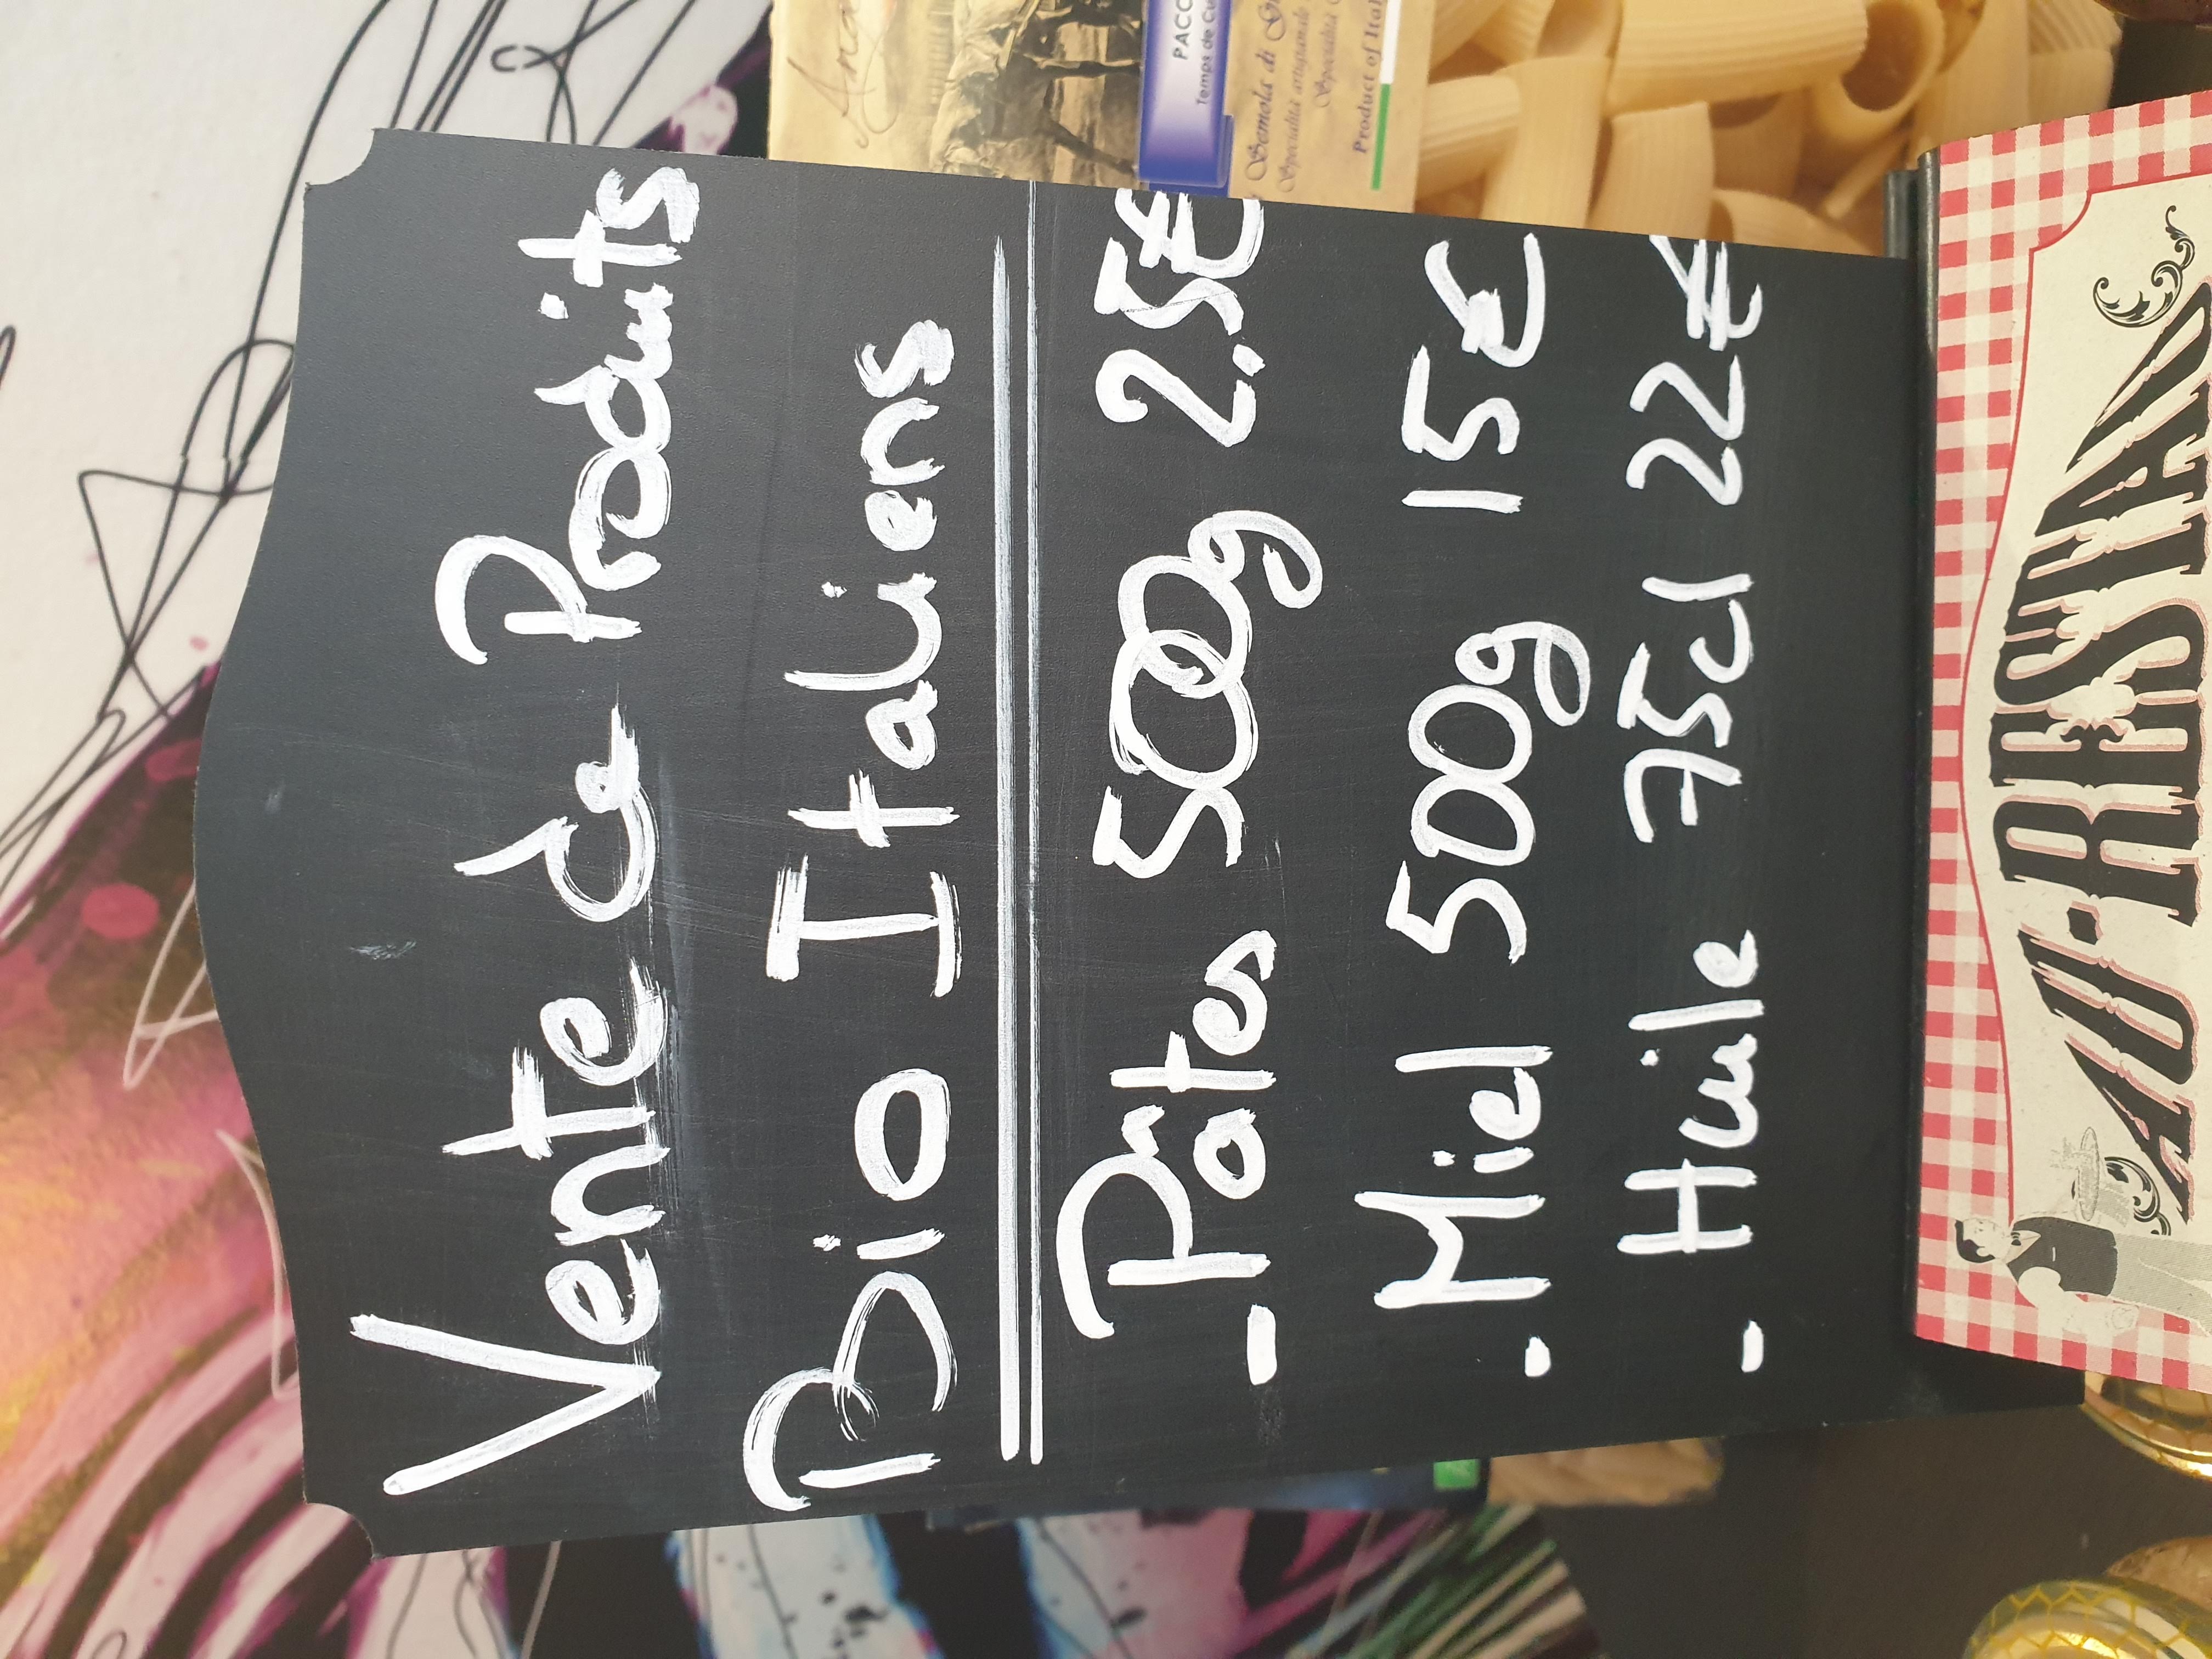 Vente de Produits
Bio Italiens
- Pâtes 500g 2.5€
- Miel 500g 15€
- Huile 75cl 22€
PACC
Temps de Cu
Semola di Gr
Specialità artigianale
Product of Ital